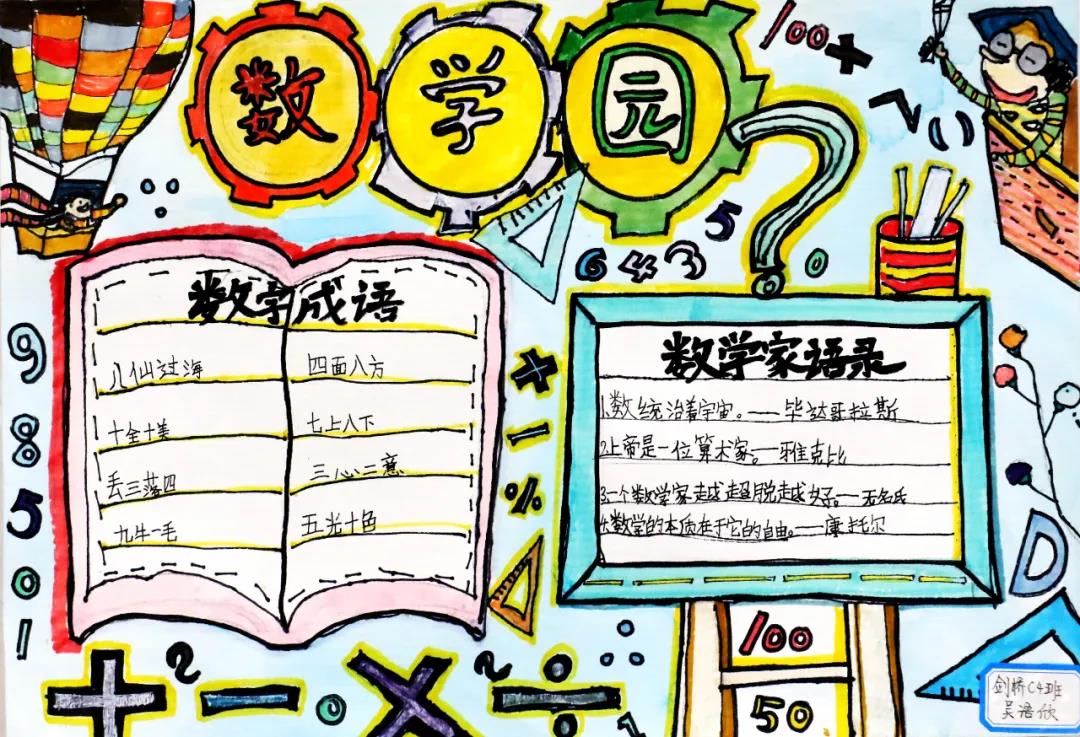 数学园
100
+
5
6 4 3 0
数学成语
八仙过海
四面八方
十全十美
七上八下
丢三落四
三心二意
九牛一毛
五光十色
数学家语录
1.数统治着宇宙。——毕达哥拉斯
2.上帝是一位算术家。——雅克比
3.一个数学家越超脱越好。——无名氏
4.数学的本质在于它的自由。——康托尔
9
8
5
0
1
+
-
%
100
50
+ 2 - 0 × 2 ÷ 1
剑桥C4班
吴浯欣